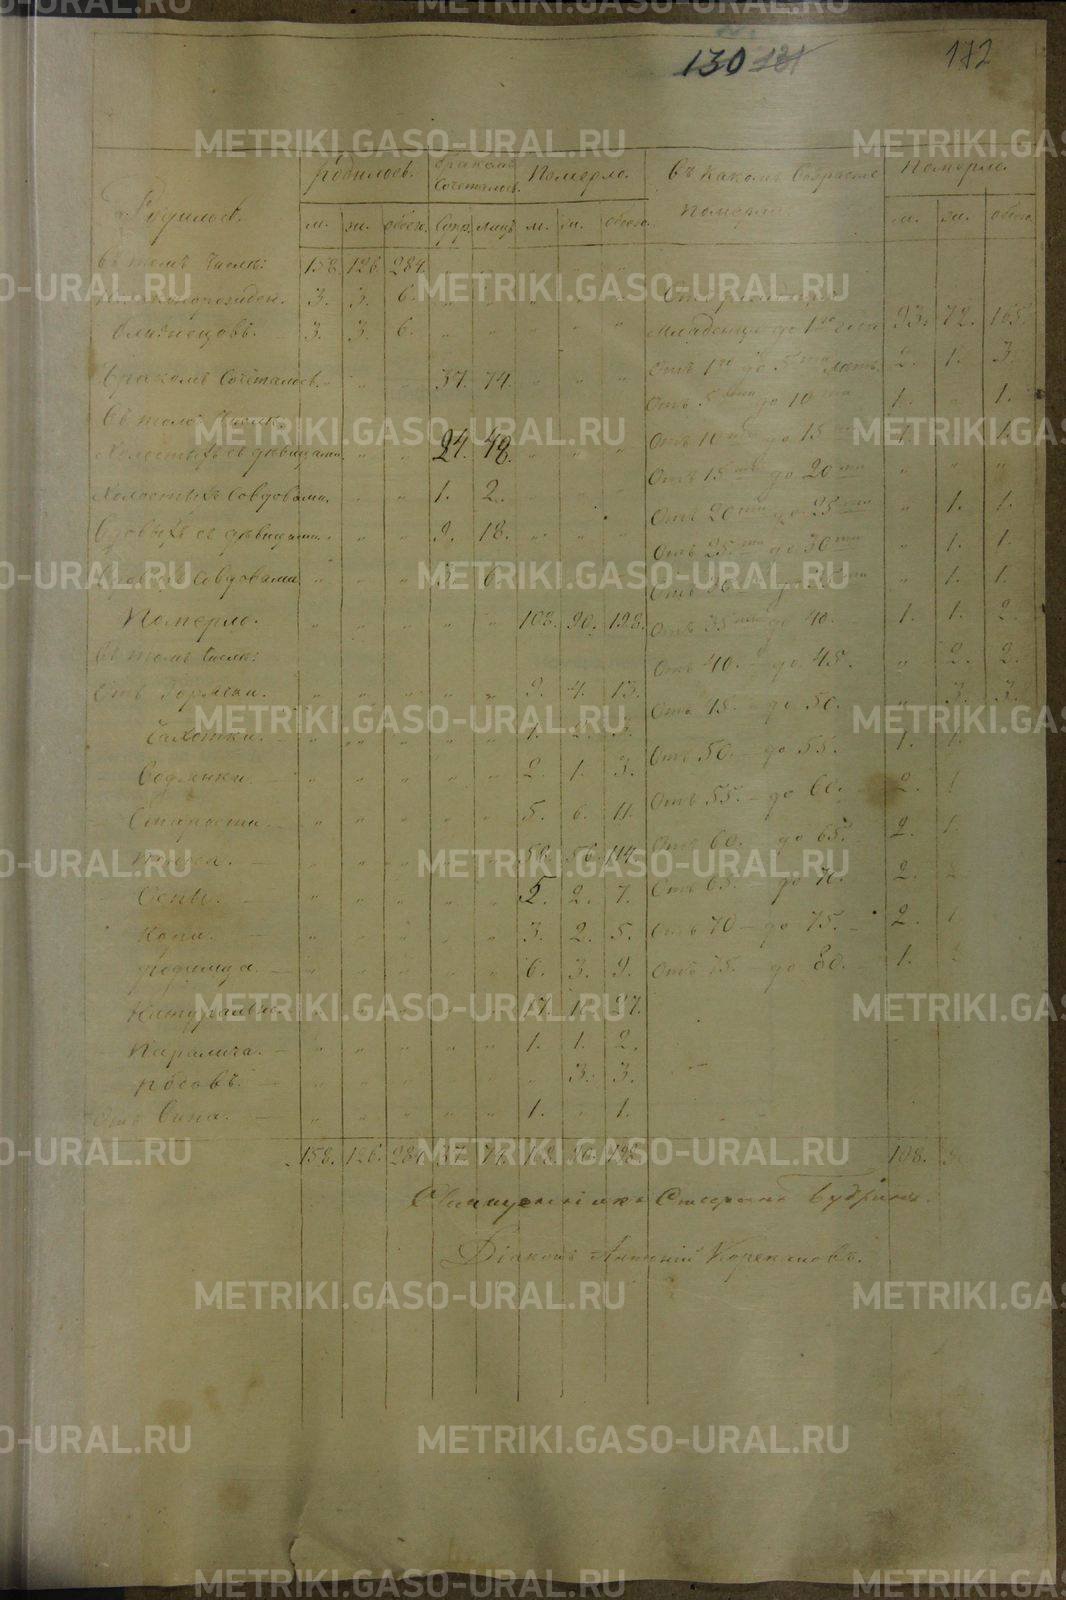 130 131 112
Родилось. Бракомъ Сочеталось. Померло. Въ какомъ возрастѣ померли Померло.
Родилось. м. ж. обоего. Супр. лицъ м. ж. обоего. м. ж. обоего.
Въ томъ числѣ: 158. 126. 284.
3. 3. 6.
Близнецовъ. 3. 3. 6. Младенцы до 1го года 93. 72. 165.
Бракомъ Сочеталось. 37. 74. Отъ 1го до 5ти лѣтъ. 2. 1. 3.
Въ томъ числѣ. Отъ 5ти до 10ти 1. 1.
Холостыхъ съ дѣвицами. 24. 48. Отъ 10ти до 15ти 1.
Холостыхъ Совдовами. 1. 2. Отъ 15ти до 20ти
Вдовыхъ съ дѣвицами. 9. 18. Отъ 20ти до 25ти 1. 1.
Вдовыхъ Совдовами. 3. 6. Отъ 25ти до 30ти 1. 1.
Отъ 30ти до 35ти 1. 1.
Померло. 108. 90. 198. Отъ 35ти до 40. 1. 1. 2.
Въ томъ числѣ: Отъ 40. до 45. 2. 2.
Отъ Горячки. 9. 4. 13. Отъ 45. до 50. 3. 3.
Чахотки. 1. 2. 3. Отъ 50. до 55. 1.
Водянки. 2. 1. 3. Отъ 55. до 60. 2.
Старости. 5. 6. 11. Отъ 60. до 65. 2.
Поноса. 58. 56. 114. Отъ 65. до 70. 2.
Оспы. 5. 2. 7. Отъ 70 до 75. 2.
Кори. 3. 2. 5. Отъ 75. до 80. 1.
Родимца. 6. 3. 9.
Натуральн. 17. 10. 27.
Паралича. 1. 1. 2.
Родовъ. 3. 3.
Отъ Вина. 1. 1.
158. 126. 284. 37. 74. 108. 90. 198. 108. 90
Священникъ Стефанъ Будринъ.
Діаконъ Антоній Корекановъ.
METRIKI.GASO-URAL.RU